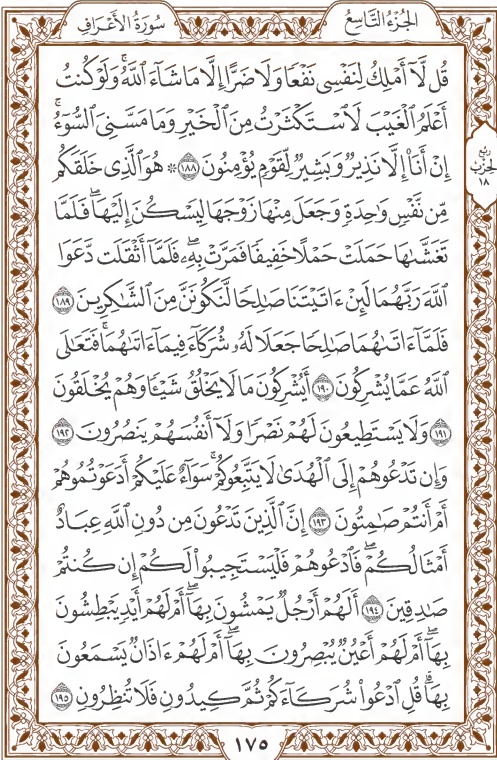 الجُزْءُ التَّاسِعُ
سُورَةُ الأَعْرَافِ
قُل لَّآ أَمْلِكُ لِنَفْسِى نَفْعًا وَلَا ضَرًّا إِلَّا مَا شَآءَ ٱللَّهُ ۚ وَلَوْ كُنتُ
أَعْلَمُ ٱلْغَيْبَ لَٱسْتَكْثَرْتُ مِنَ ٱلْخَيْرِ وَمَا مَسَّنِىَ ٱلسُّوٓءُ ۚ
إِنْ أَنَا۠ إِلَّا نَذِيرٌ وَبَشِيرٌ لِّقَوْمٍ يُؤْمِنُونَ ١٨٨ ۞ هُوَ ٱلَّذِى خَلَقَكُم
مِّن نَّفْسٍ وَٰحِدَةٍ وَجَعَلَ مِنْهَا زَوْجَهَا لِيَسْكُنَ إِلَيْهَا ۖ فَلَمَّا
تَغَشَّىٰهَا حَمَلَتْ حَمْلًا خَفِيفًا فَمَرَّتْ بِهِۦ ۖ فَلَمَّآ أَثْقَلَت دَّعَوَا
ٱللَّهَ رَبَّهُمَا لَئِنْ ءَاتَيْتَنَا صَٰلِحًا لَّنَكُونَنَّ مِنَ ٱلشَّٰكِرِينَ ١٨٩
فَلَمَّآ ءَاتَىٰهُمَا صَٰلِحًا جَعَلَا لَهُۥ شُرَكَآءَ فِيمَآ ءَاتَىٰهُمَا ۚ فَتَعَٰلَى
ٱللَّهُ عَمَّا يُشْرِكُونَ ١٩٠ أَيُشْرِكُونَ مَا لَا يَخْلُقُ شَيْـًٔا وَهُمْ يُخْلَقُونَ
١٩١ وَلَا يَسْتَطِيعُونَ لَهُمْ نَصْرًا وَلَآ أَنفُسَهُمْ يَنصُرُونَ ١٩٢
وَإِن تَدْعُوهُمْ إِلَى ٱلْهُدَىٰ لَا يَتَّبِعُوكُمْ ۚ سَوَآءٌ عَلَيْكُمْ أَدَعَوْتُمُوهُمْ
أَمْ أَنتُمْ صَٰمِتُونَ ١٩٣ إِنَّ ٱلَّذِينَ تَدْعُونَ مِن دُونِ ٱللَّهِ عِبَادٌ
أَمْثَالُكُمْ ۖ فَٱدْعُوهُمْ فَلْيَسْتَجِيبُوا۟ لَكُمْ إِن كُنتُمْ
صَٰدِقِينَ ١٩٤ أَلَهُمْ أَرْجُلٌ يَمْشُونَ بِهَآ ۖ أَمْ لَهُمْ أَيْدٍ يَبْطِشُونَ
بِهَآ ۖ أَمْ لَهُمْ أَعْيُنٌ يُبْصِرُونَ بِهَآ ۖ أَمْ لَهُمْ ءَاذَانٌ يَسْمَعُونَ
بِهَا ۗ قُلِ ٱدْعُوا۟ شُرَكَآءَكُمْ ثُمَّ كِيدُونِ فَلَا تُنظِرُونِ ١٩٥
ربع
الحزب
١٨
١٧٥